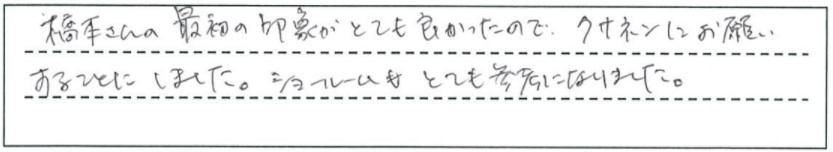 橋本さんの最初の印象がとても良かったので、クサネンにお願い
することにしました。ショールームもとても参考になりました。